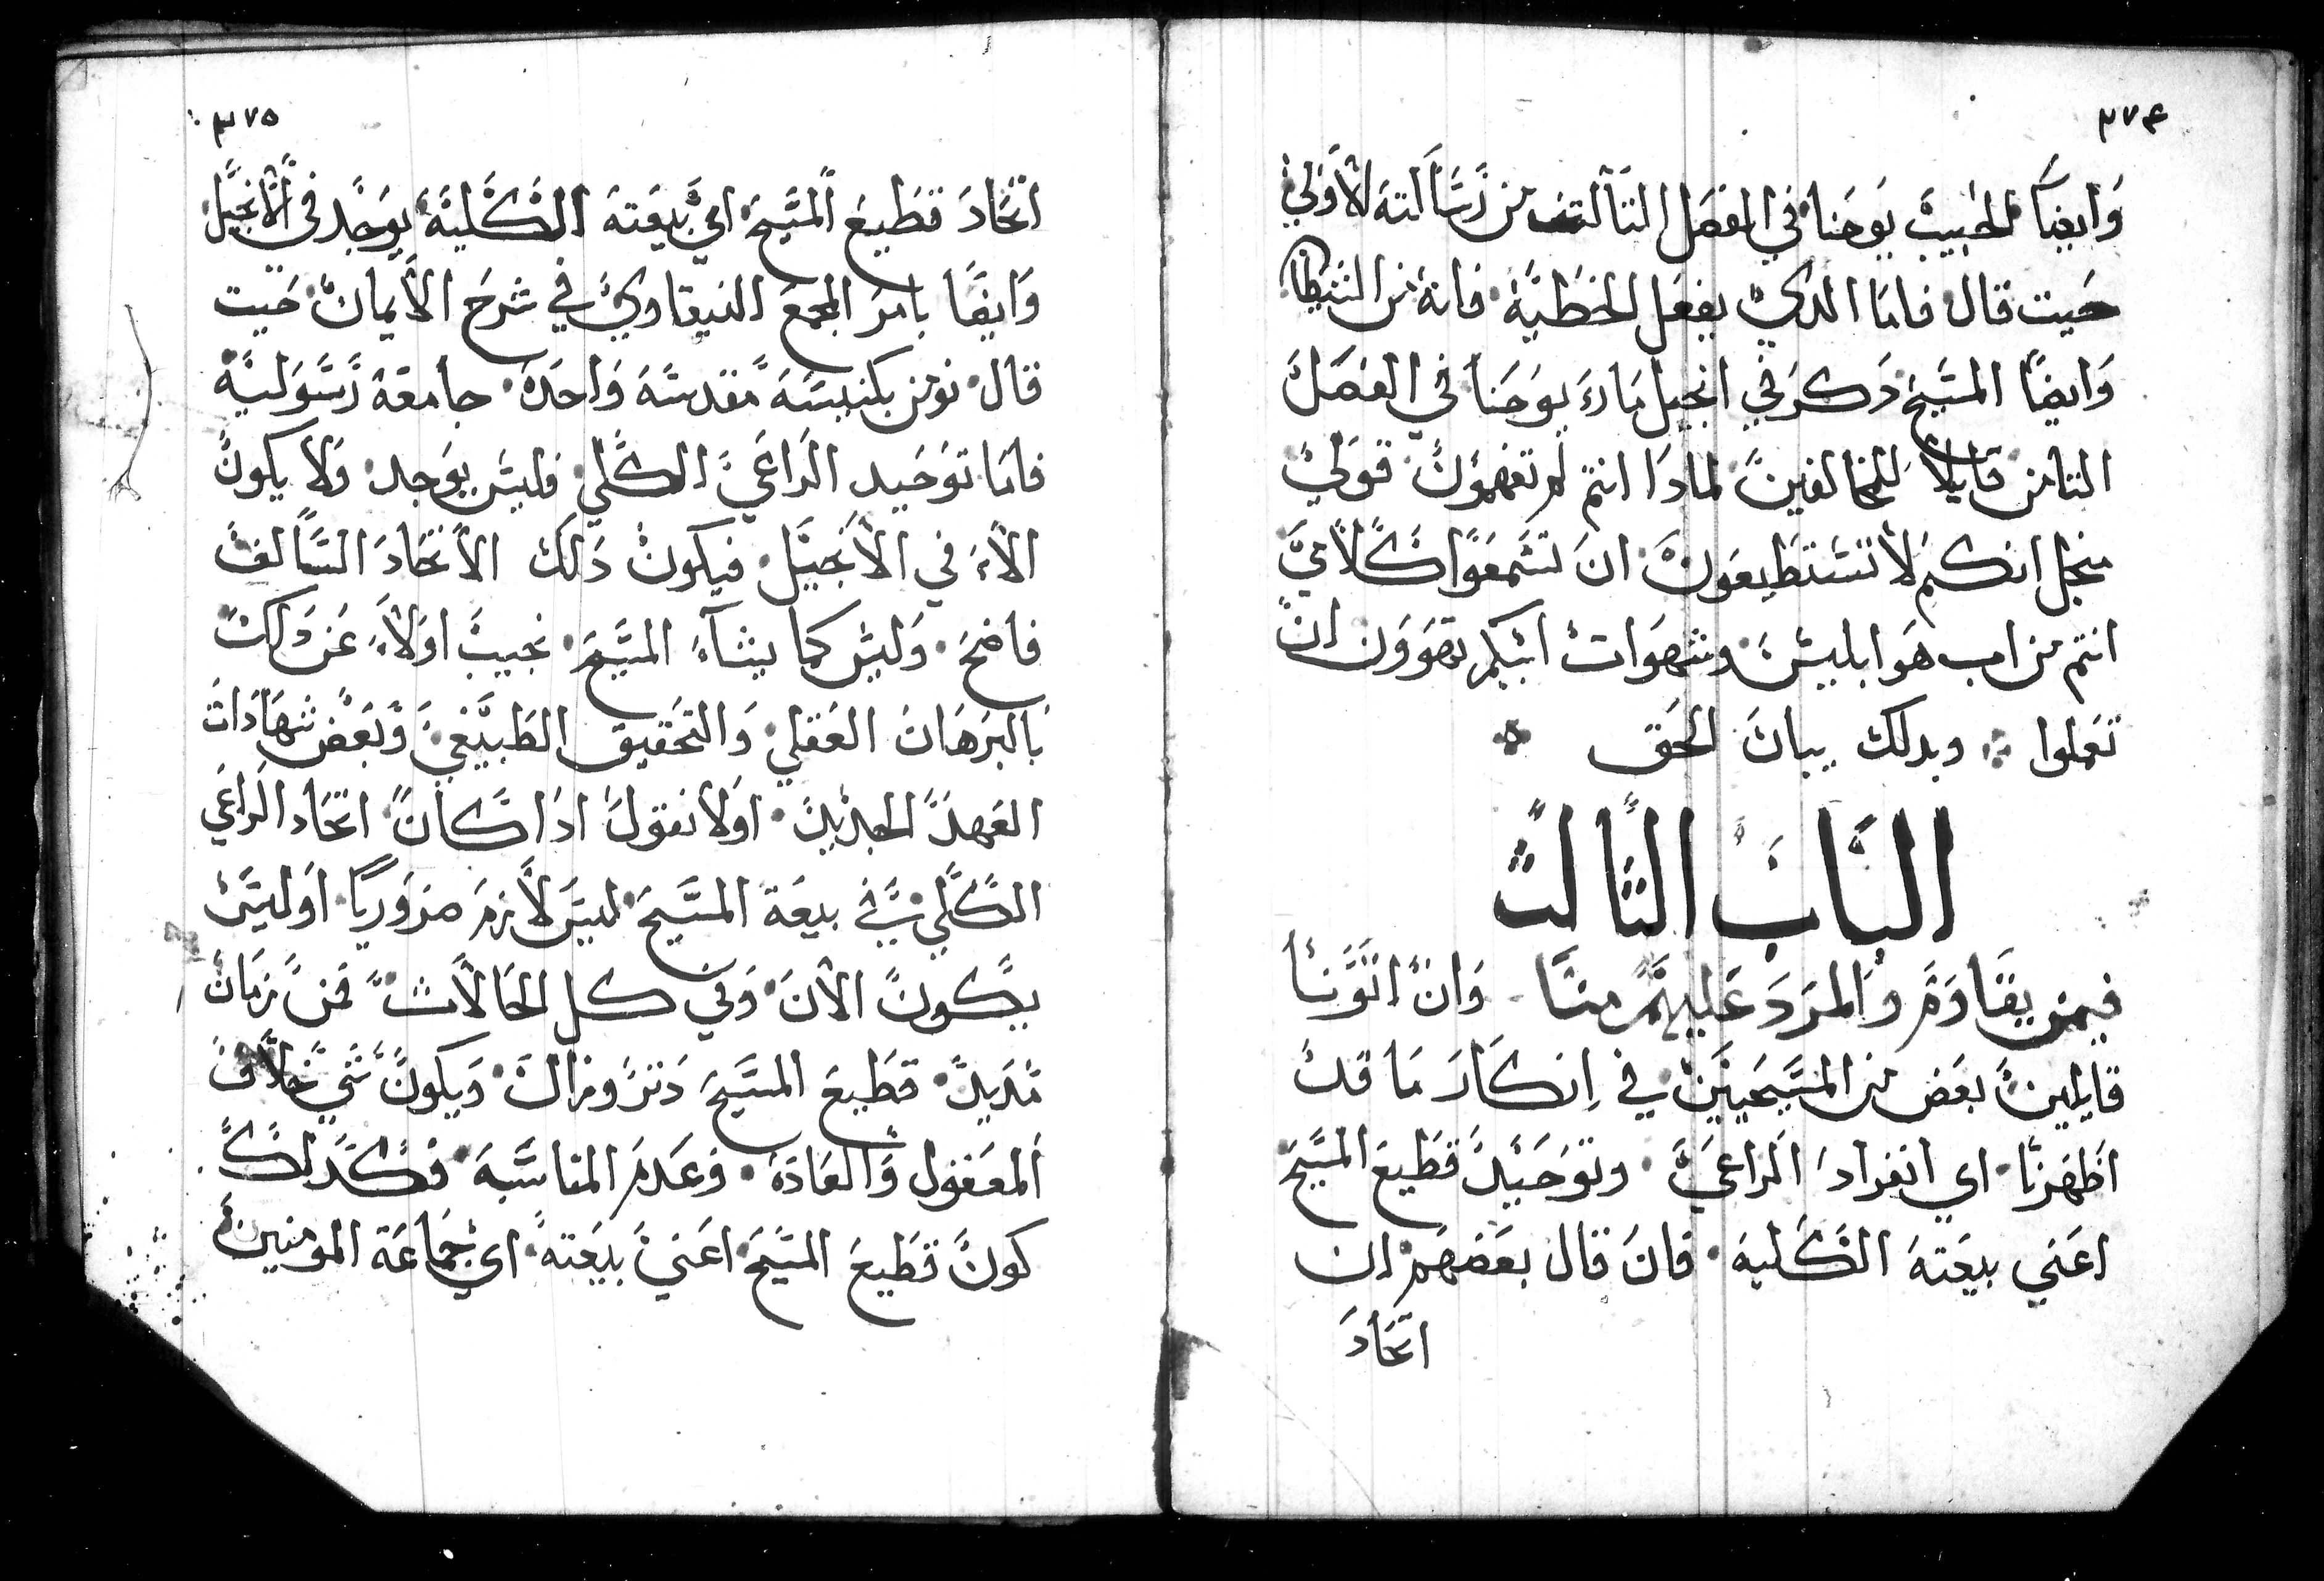 ٣٧٤
وايضا الحبيب يوحنا في الفصل التالت من رسالته الاولي
حيت قال فاما الدي يفعل الخطية فانه من الشيطان
وايضا المسيح دكر في انجيل مار يوحنا في الفصل
التامن قايلا للمخالفين لمادا انتم لم تفهمون قولي
منجل انكم لا تستطيعون ان تسمعوا كلامي
انتم من اب هو ابليس وشهوات ابيكم تهوون ان
تعملوا وبدلك بيان الحق
الباب الثالث
فيمن يقاوم والمرد عليهم منا وان اتونا
قايلين بعض من المسيحيين في انكار ما قد
اظهرنا اي انفراد الراعي وتوحيد قطيع المسيح
اعني بيعته الكلية فان قال بعضهم ان
اتحاد
٣٧٥
اتحاد قطيع المسيح اي بيعته الكلية يوجد في الانجيل
وايضا بامر المجمع النيقاوي في شرح الايمان حيت
قال نومن بكنيسة مقدسة واحدة جامعة رسولية
فاما توحيد الراعي الكلي فليس يوجد ولا يكون
الاء في الانجيل فيكون دلك الاتحاد السالف
فاضح وليس كما يشاء المسيح نجيب اولاء عن دلك
بالبرهان العقلي والتحقيق الطبيعي وبعض شهادات
العهد الجديد اولا نقول ادا كان اتحاد الراعي
الكلي في بيعة المسيح ليس لازم ضروريا او ليس
يكون الان وفي كل الحالات فمن زمان
مديد قطيع المسيح دتر وزال ويكون شي خلاف
المعقول والعادة وعدم المناسبة فكدلك
كون قطيع المسيح اعني بيعته اي جماعة المومنين